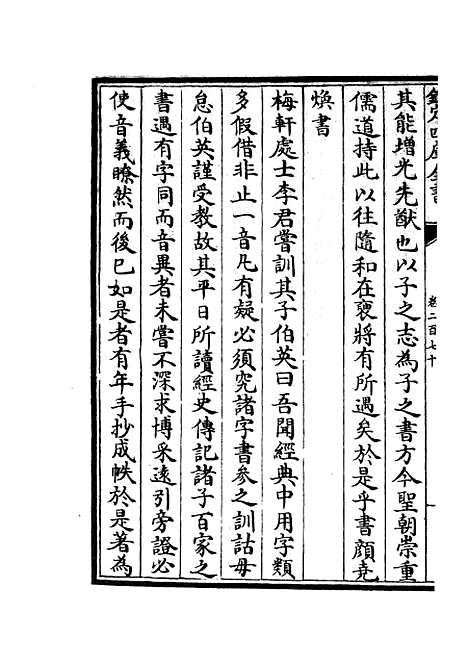 欽定四庫全書
卷二百七十
其能増光先猷也以子之志為子之書方今聖朝崇重
儒道持此以往隨和在褏將有所遇矣於是乎書顔堯
煥書
梅軒處士李君嘗訓其子伯英曰吾聞經典中用字類
多假借非止一音凡有疑必須究諸字書參之訓詁毋
怠伯英謹受教故其平日所讀經史傳記諸子百家之
書遇有字同而音異者未嘗不深求博采逺引旁證必
使音義瞭然而後已如是者有年手抄成帙於是著為